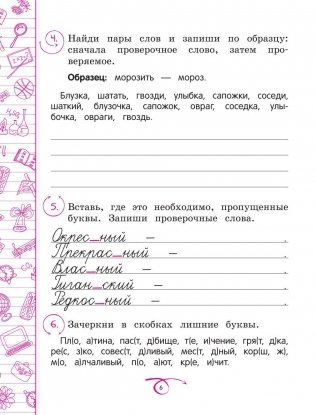 4. Найди пары слов и запиши по образцу:
сначала проверочное слово, затем про-
веряемое.
Образец: морозить — мороз.
Блузка, шатать, гвозди, улыбка, сапожки, соседи,
шаткий, блузочка, сапожок, овраг, соседка, улы-
бочка, овраги, гвоздь.
5. Вставь, где это необходимо, пропущенные
буквы. Запиши проверочные слова.
Окрес_ный — .
Прекрас_ный — .
Влас_ный — .
Гиган_ский — .
Редкос_ный — .
6. Зачеркни в скобках лишние буквы.
Пл(о, а)тина, пас(т, д)бище, т(е, и)чение, гря(т, д)ка,
ре(с, з)ко, совес(т, д)ливый, мес(т, д)ный, кор(ш, ж),
м(о, а)лчаливый, п(о, а)ют, кр(е, и)чит.
6